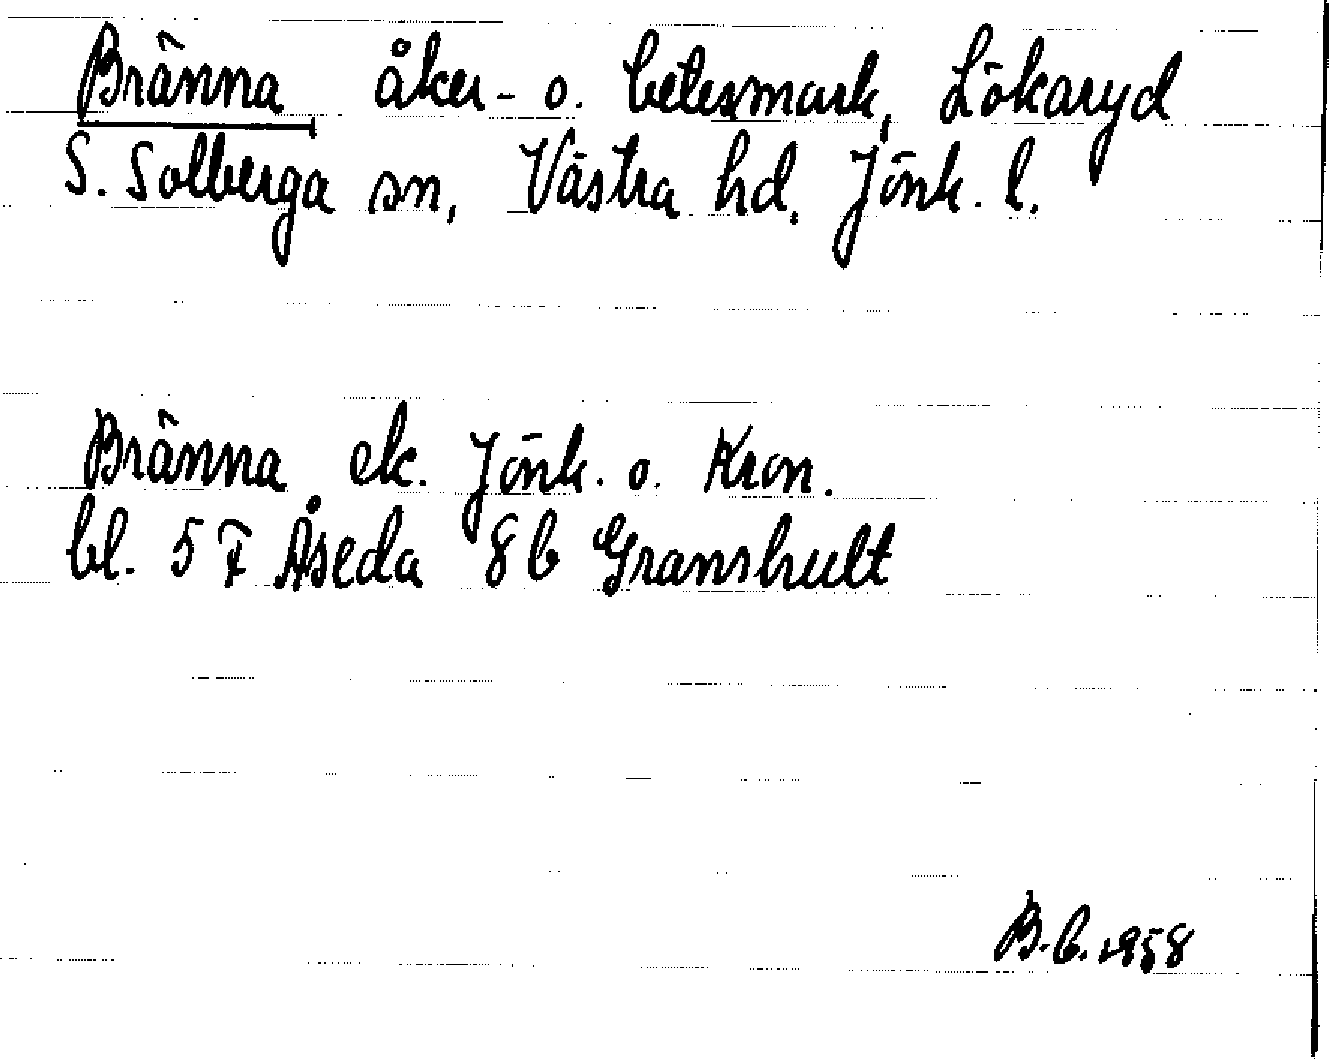 Bränna åker- o. betesmark, Lökaryd
S. Solberga sn, Västra hd. Jönk. l.
Bränna ek. Jönk. o. Kron.
bl. 5 F Åseda 8 b Granshult
B. b. 1958